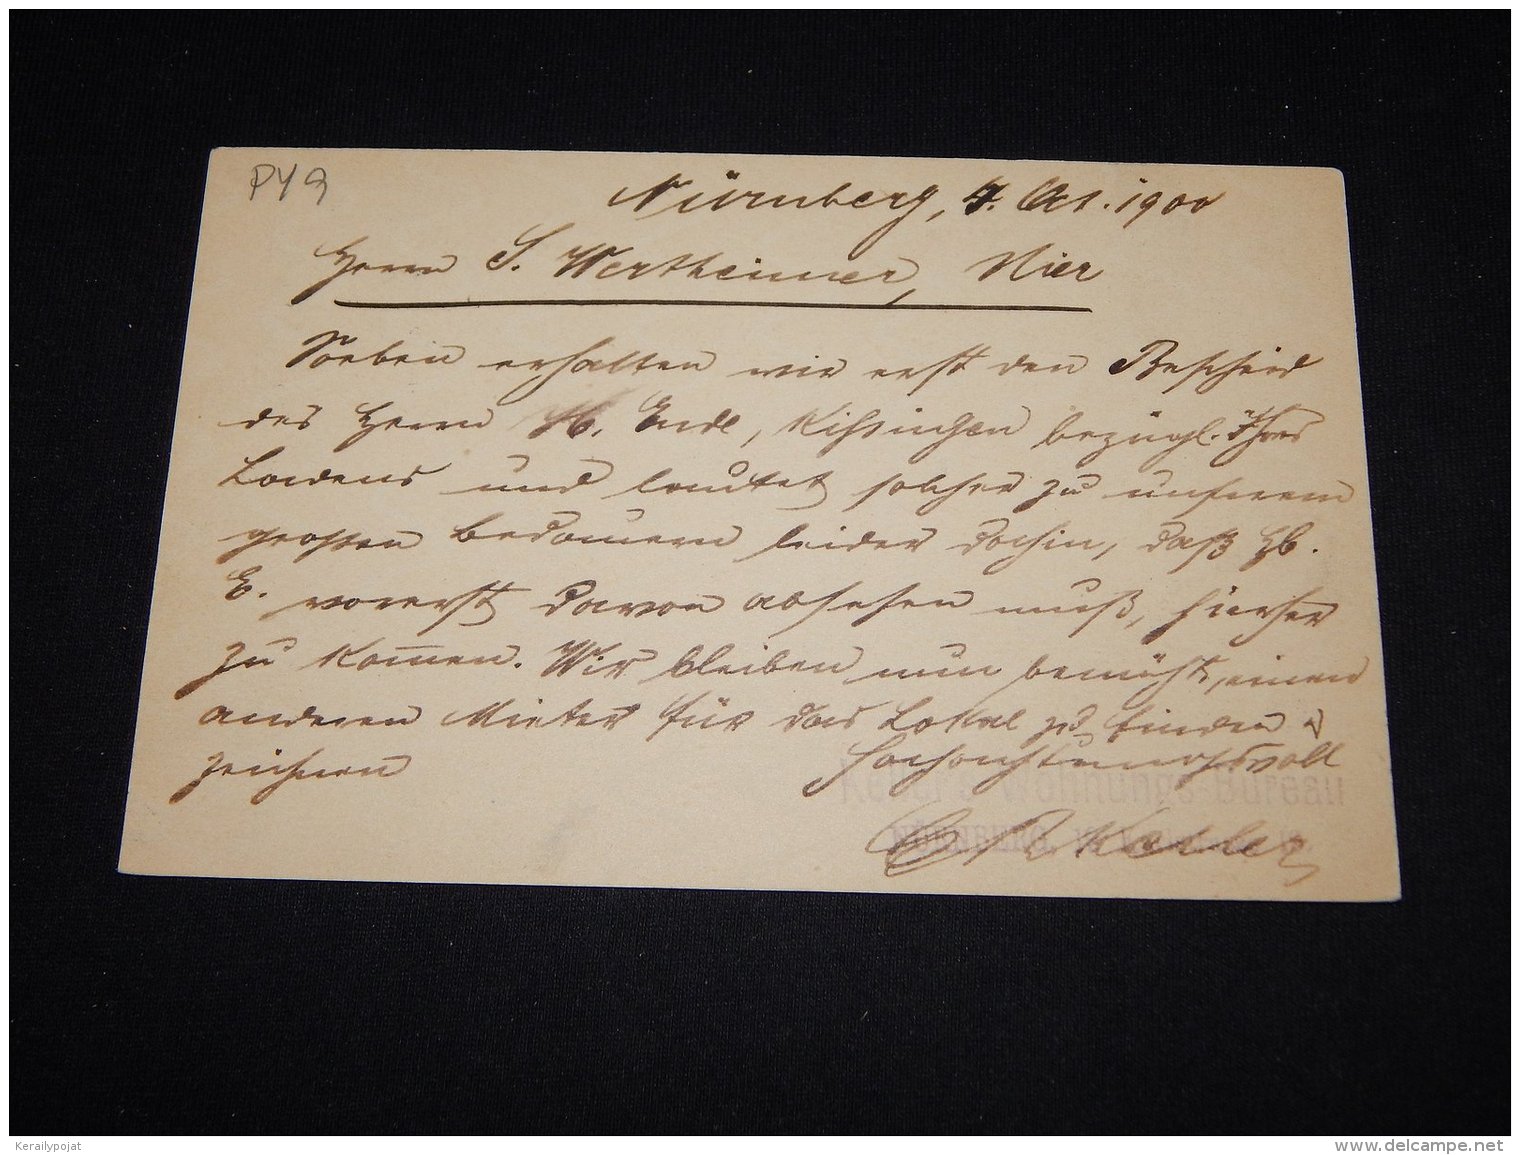 PY9
Nürnberg, 4. Okt. 1900
Herrn S. Wertheimer, Hier
Soeben erhalten wir erst den Bescheid
des Herrn Hb. Ende, Kissingen bezügl. Ihres
Ladens und lautet solcher zu unserem
grossen Bedauern leider dahin, daß Hb.
E. vorerst davon absehen muß, hierher
zu kom̄en. Wir bleiben nun bemüht, einen
anderen Mieter für das Lokal zu finden &
zeichnen
Hochachtungsvoll
Keller's Wohnungs-Bureau
NÜRNBERG,
Keller
Kerailypojat
www.delcampe.net